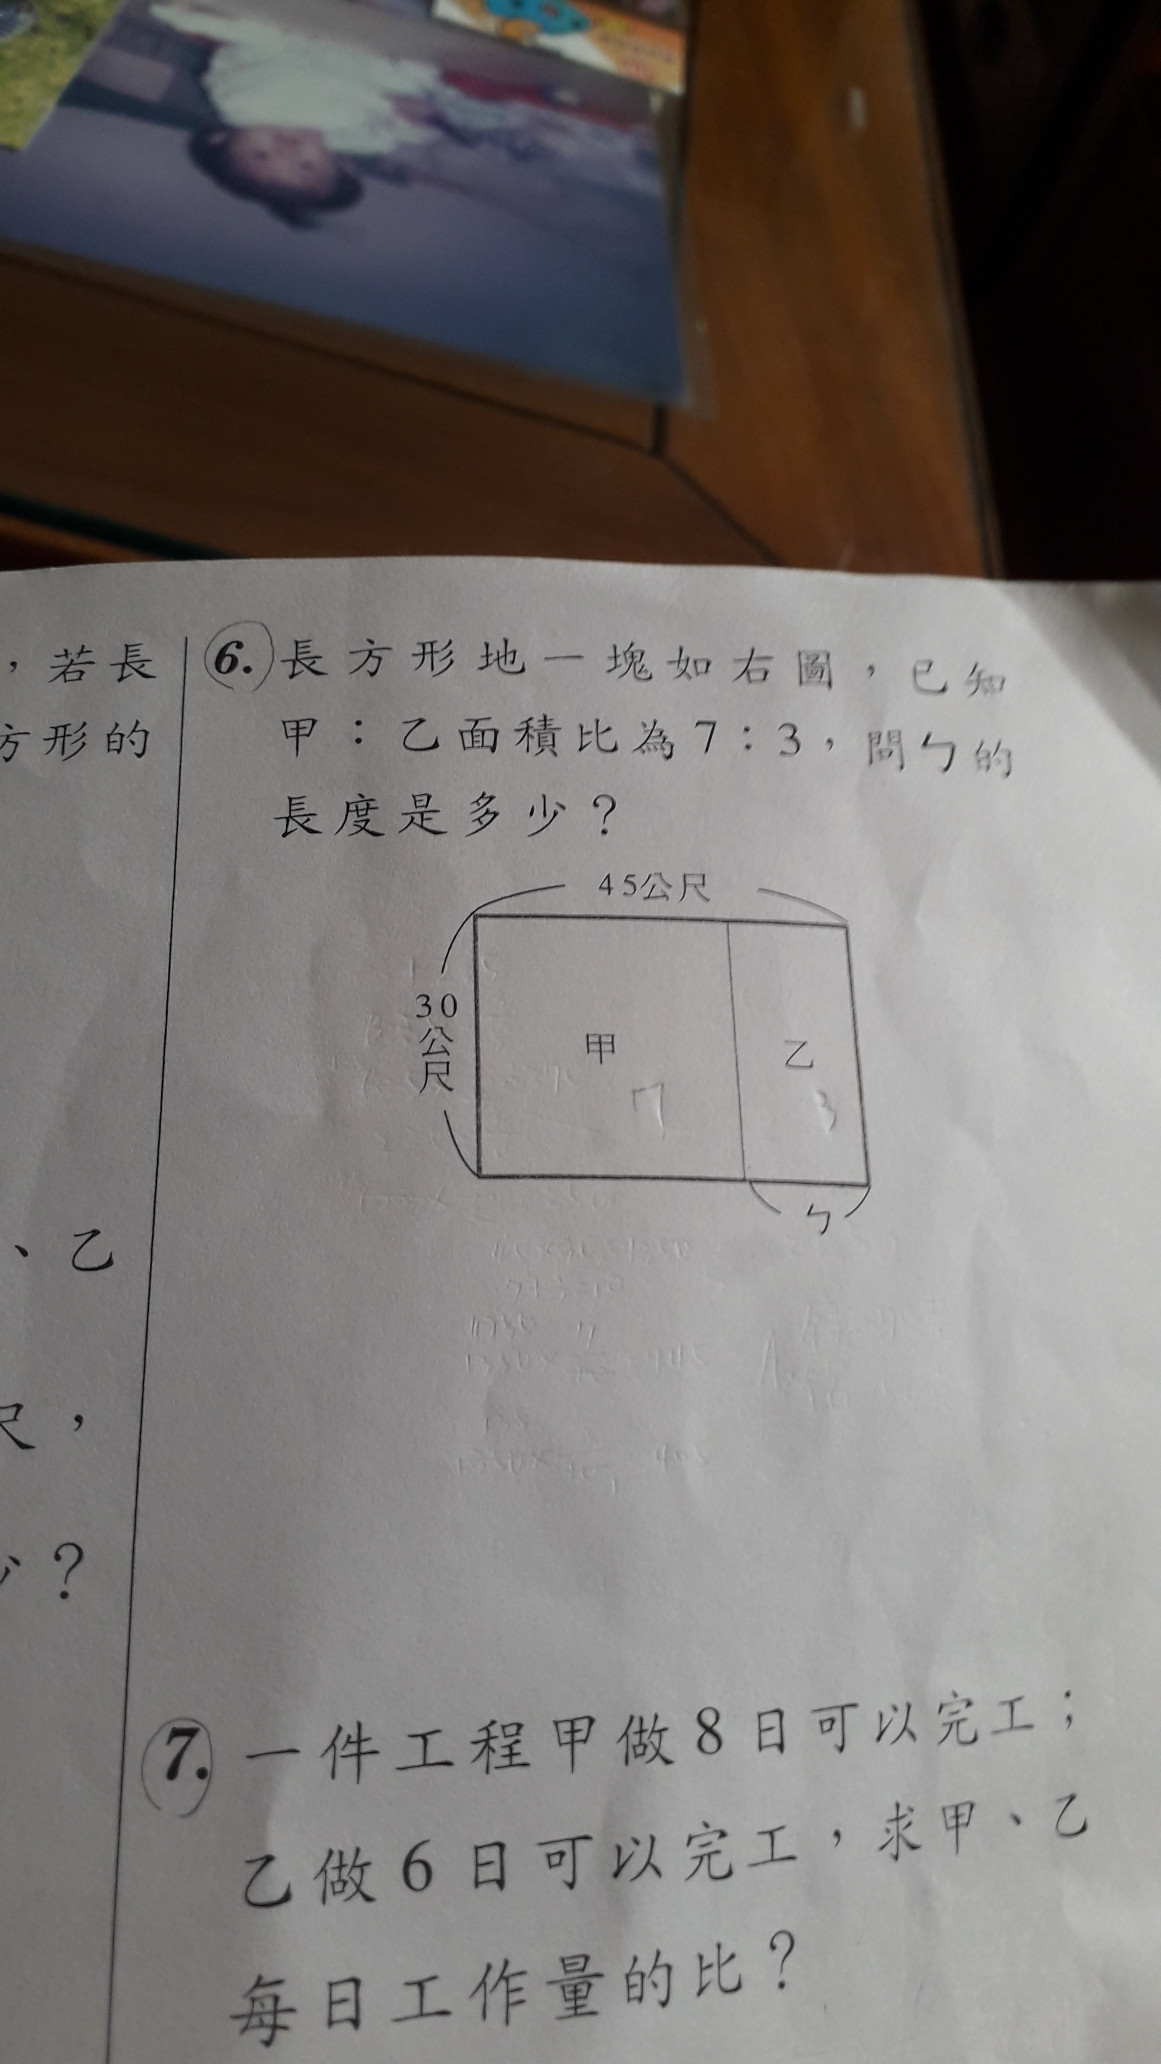 ，若長
方形的
、乙
尺，
少？
6. 長方形地一塊如右圖，已知
甲：乙面積比為7：3，問ㄅ的
長度是多少？
45公尺
30公尺
甲
乙
7
3
ㄅ
45×30=1350
7+3=10
7. 一件工程甲做8日可以完工；
乙做6日可以完工，求甲、乙
每日工作量的比？